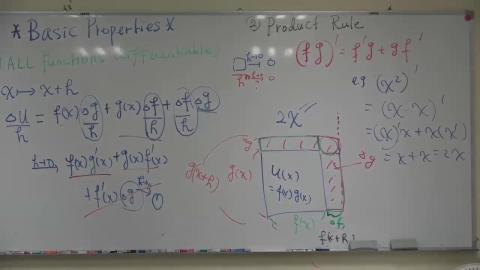 * Basic Properties *
(ALL functions differentiable)
x ↦ x+h
Δu/h = f(x) Δg/h + g(x) Δf/h + Δf/h Δg
h→0, f(x)g'(x) + g(x)f'(x)
+ f'(x) Δg → 0
Product Rule
(fg)' = f'g + gf'
e.g (x²)'
= (x·x)'
= (x)'x + x(x)'
= x + x = 2x
2x
g(x+h)
g(x)
u(x)
= f(x)g(x)
f(x)
Δf
f(x+h)
Δg